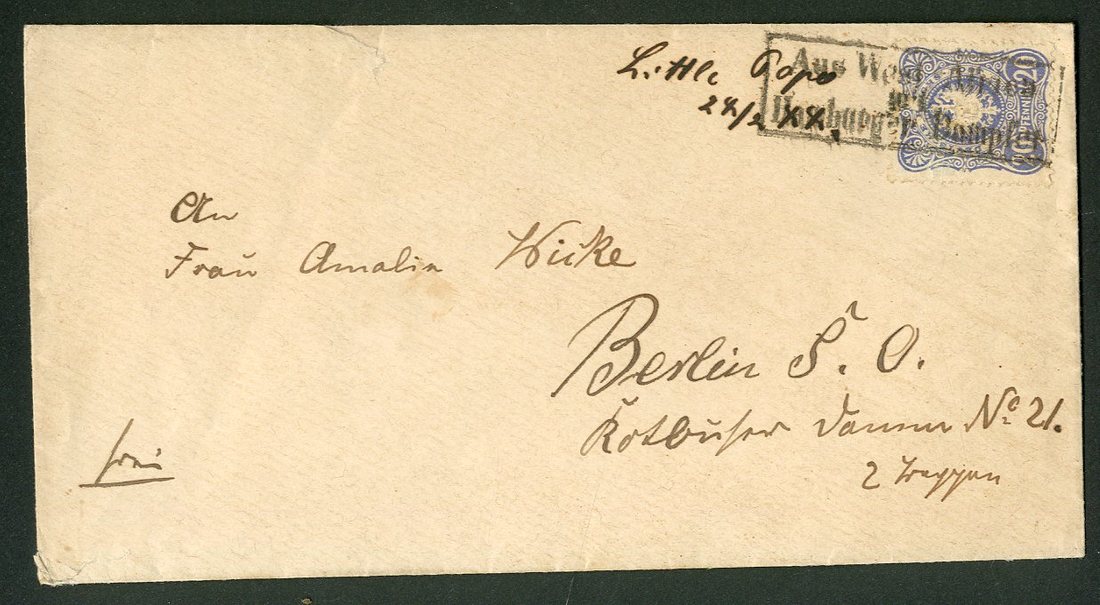 Little Popo
Aus West-Africa
mit
Hamburger Dampfer
20
PFENNIG
An
Frau Amalie Wicke
Berlin S. O.
Kotbuser Damm No 21.
2 Treppen
frei